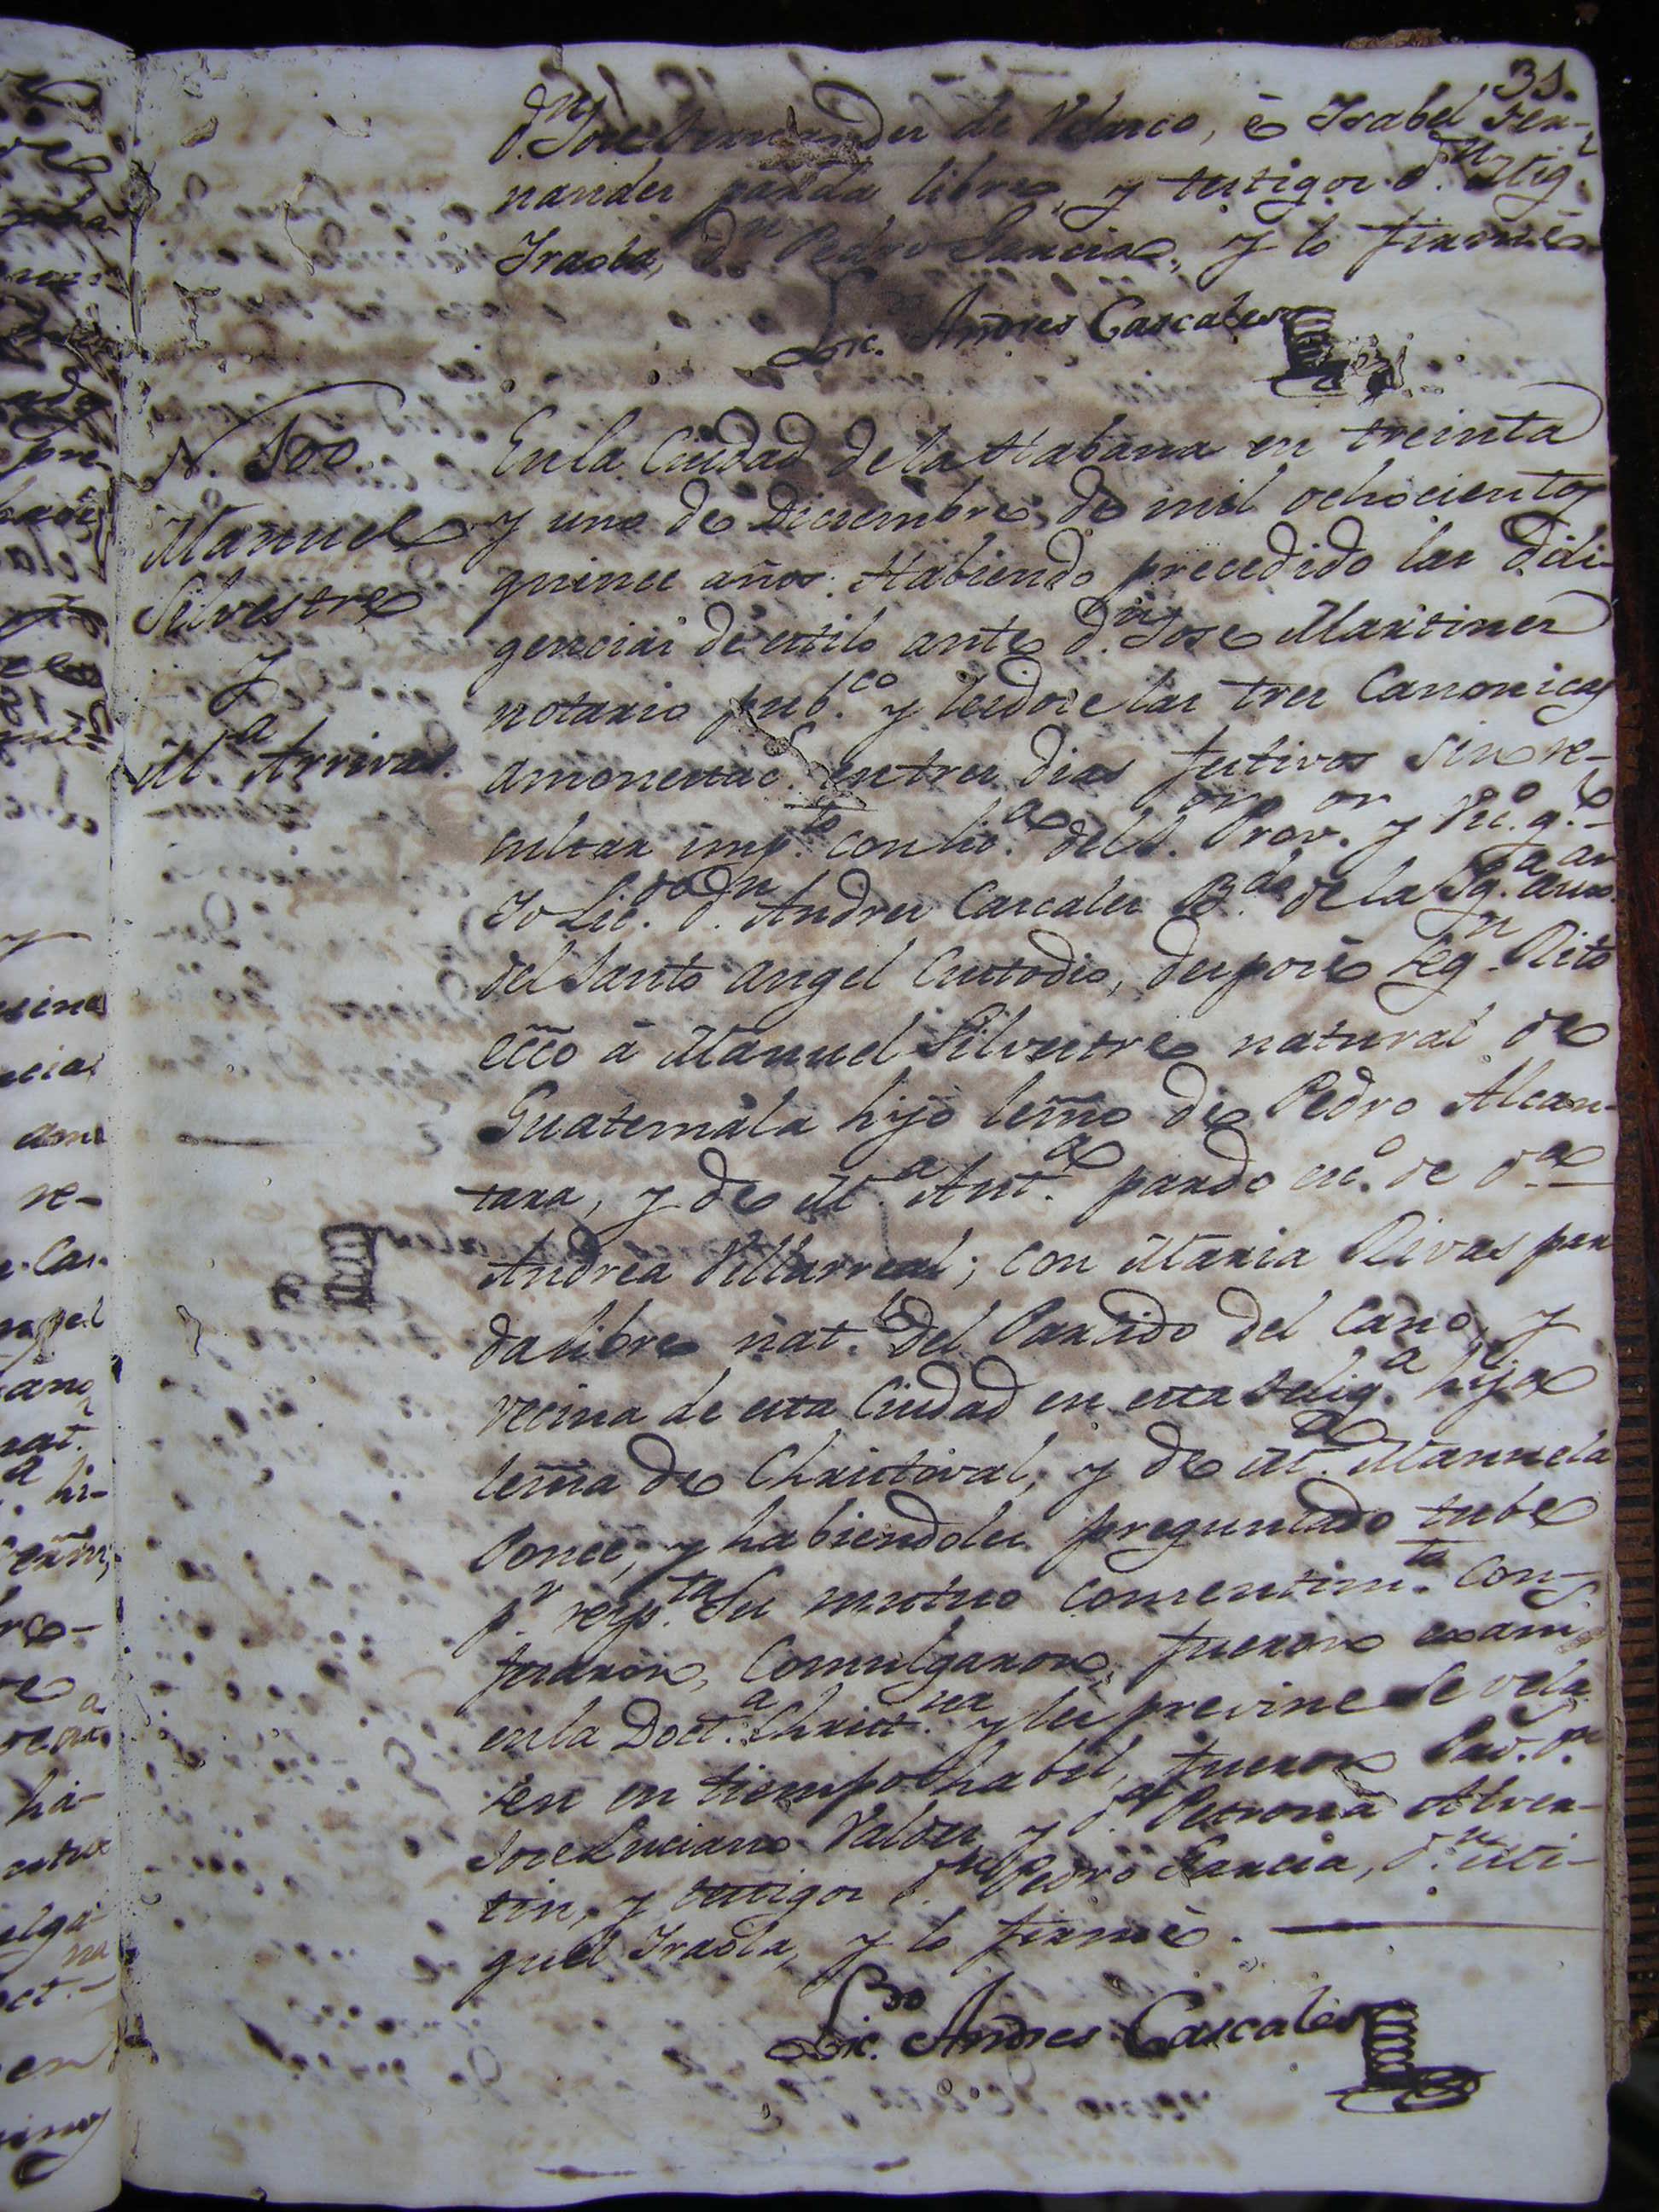 31.
d.n Jose Fernandez de Velasco, è Isabel Fer-
nandez parda libre, y testigos d.n Mig.l
Iraola, d.n Pedro Garcia, y lo firmé
Lic.do Andres Cascales
N. 100.
Manuel
Silvestre
y
M.a Arrivas.
En la Ciudad de la Habana en treinta
y uno de Diciembre de mil ochocientos
quince años: Habiendo precedido las dili-
gencias de estilo ante d.n Jose Martinez
notario pub.co y leidose las tres Canonicas
amonestac.s en tres dias festivos sin re-
sultar imp.to con lic.a del S.or Prov.or y Vic.o g.l
Yo Lic.do d.n Andres Cascales B.do de la Yg.a aux.ar
del Santo Angel Custodio, desposé seg.n Rito
ecc̃o á Manuel Silvestre natural de
Guatemala hijo lexm̃o de Pedro Alcan-
tara, y de M.a Ant.a pardo esc.o de d.a
Andrea Villarreal; con Maria Rivas par
da libre nat.l del Partido del Cano, y
vecina de esta Ciudad en esta felig.a hija
lexm̃a de Christoval, y de M.a Manuela
Ponce, y habiendoles preguntado tube
p.r resp.ta su mutuo consentim.to Con-
fesaron, Comulgaron, fueron exam.s
en la Doct.a Christ.na y les previne se vela
sen en tiempo habil, fueron Pad.s d.n
Jose Luciano Valdes, y d.a Petrona Alver-
tin, y testigos d.n Pedro Garcia, d.n Mi-
guel Iraola, y lo firmé.
Lic.do Andres Cascales